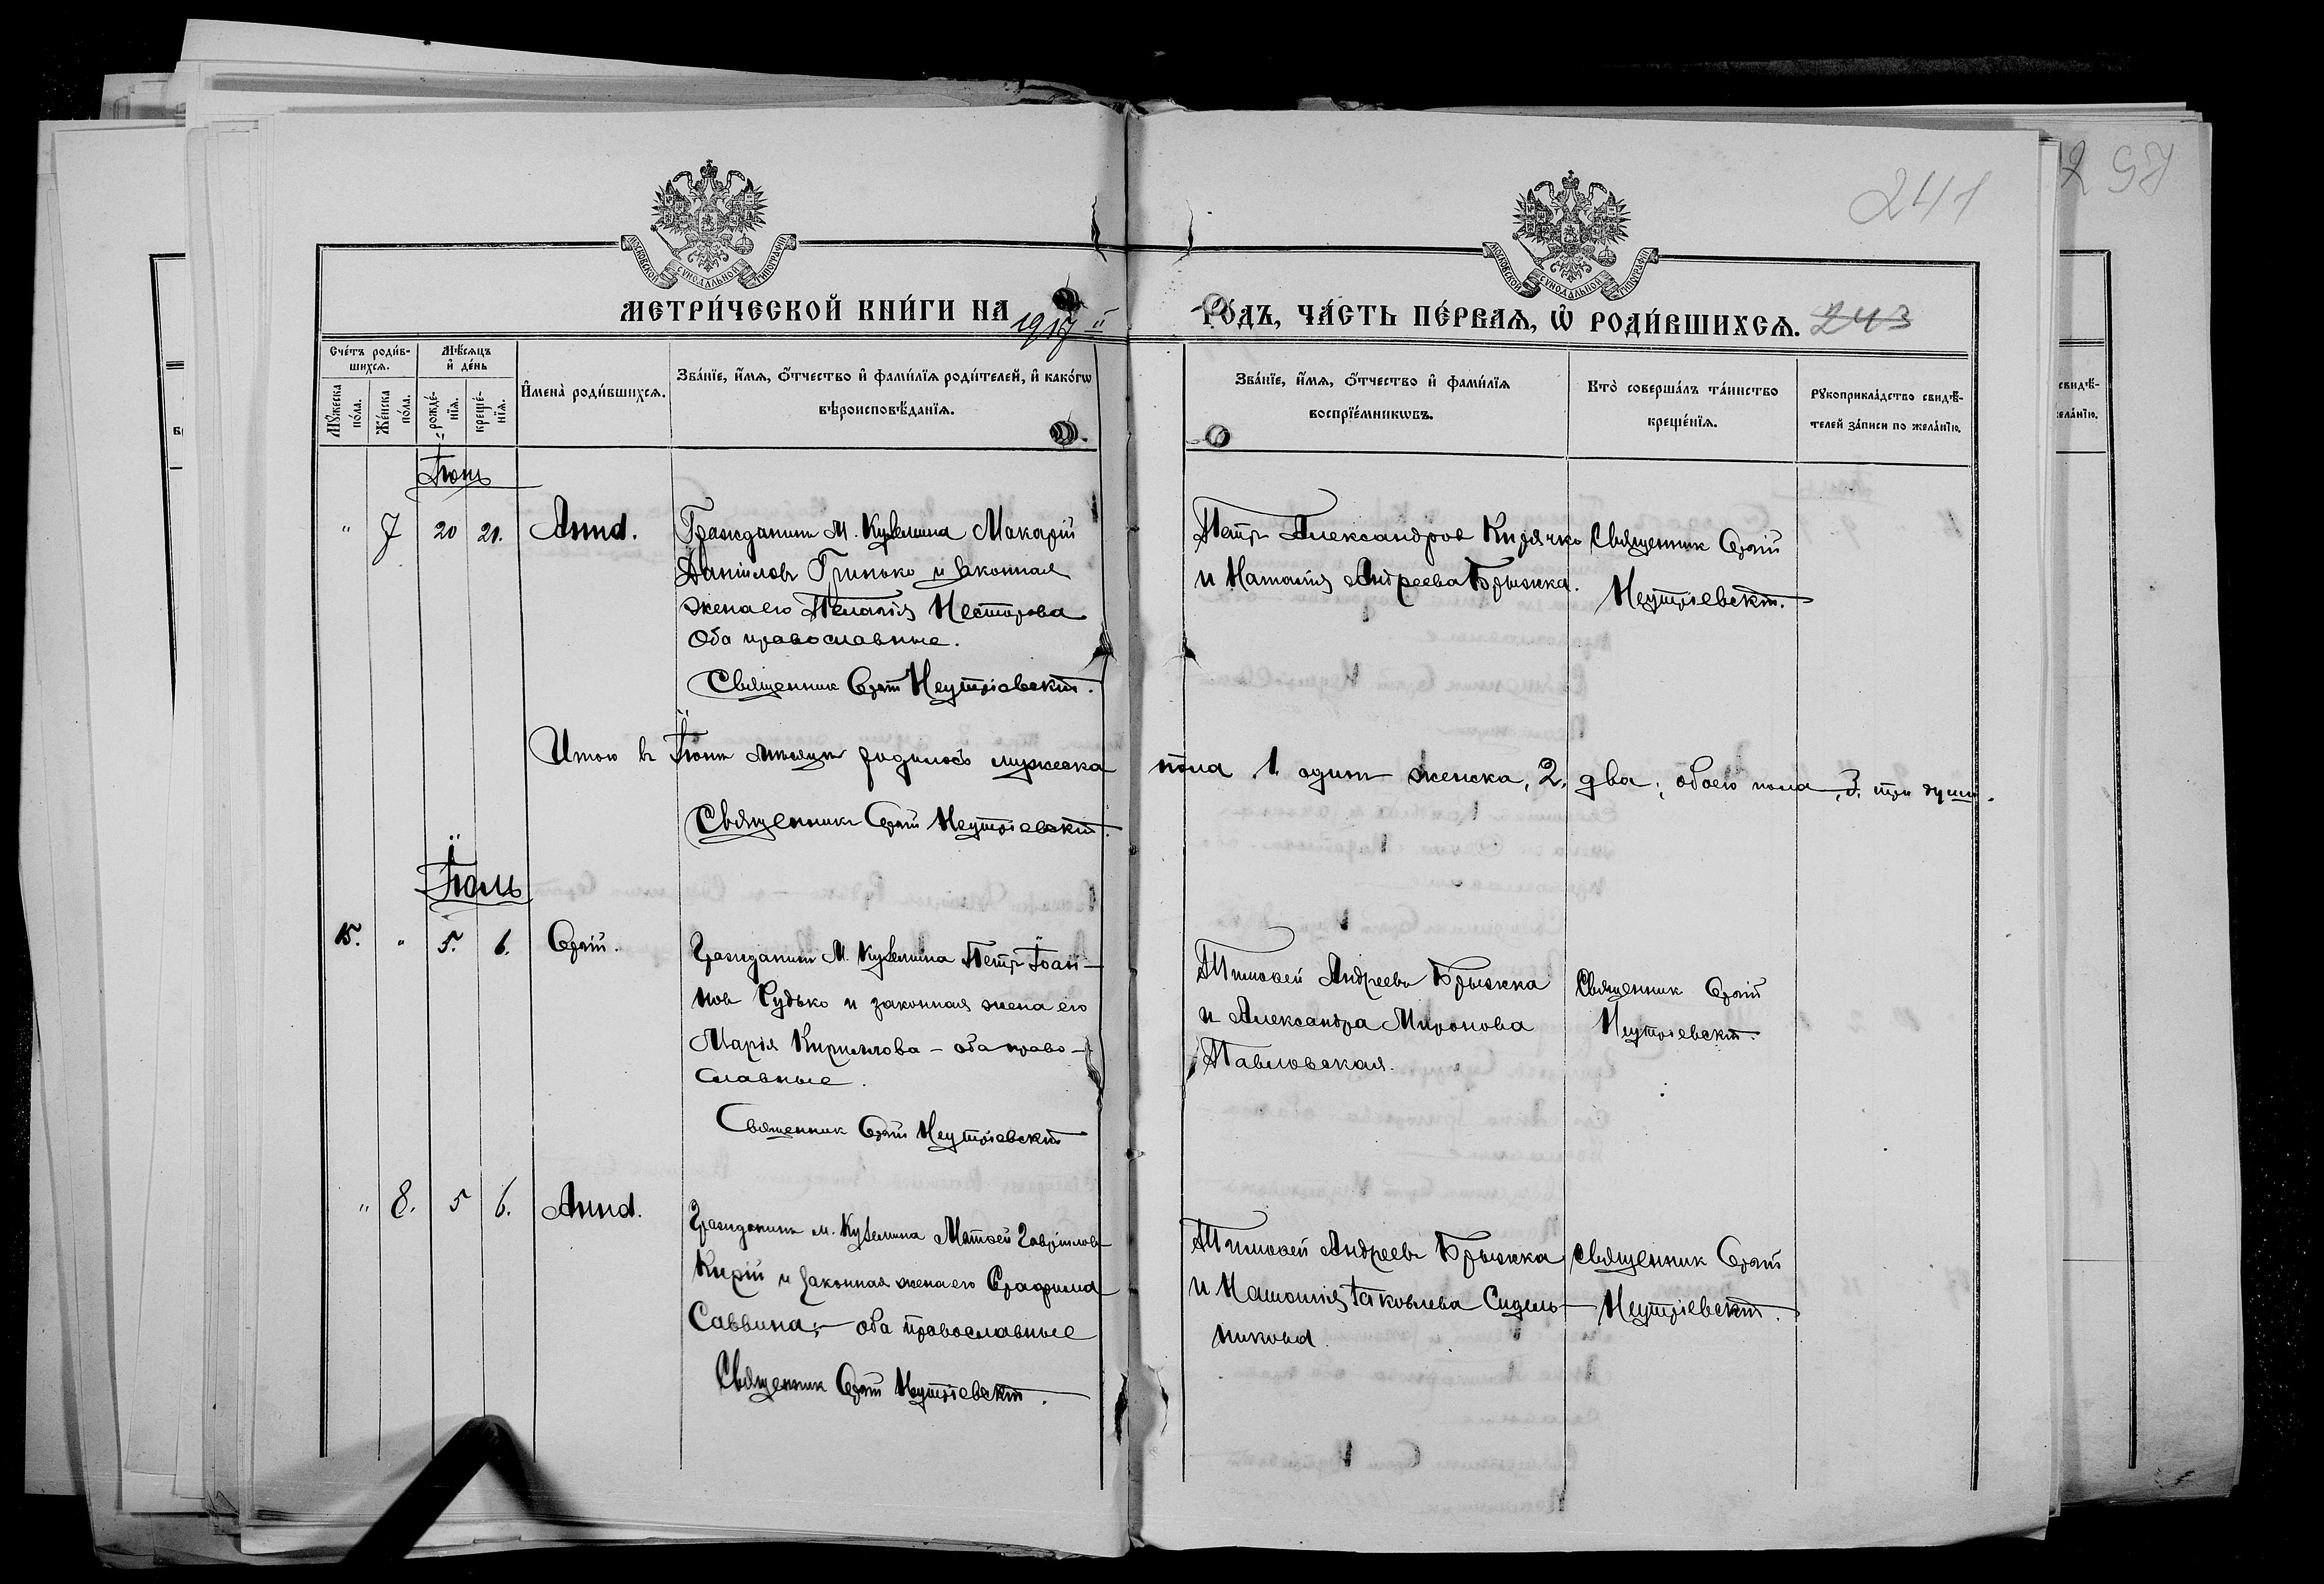 241
297
МОСКОВСКОЙ СѴНОДАЛЬНОЙ ТИПОГРАФІИ
МОСКОВСКОЙ СѴНОДАЛЬНОЙ ТИПОГРАФІИ
МЕТРИ́ЧЕСКОЙ КНИ́ГИ НА 1917 й
ГО́ДЪ, ЧА́СТЬ ПЕ́РВАЯ, Ѡ҆ РОДИ́ВШИХСЯ. 243
Сче́тъ роди́в-
шихся.
Мѣ́сяцъ
и҆ де́нь
Мꙋ́жеска
по́ла.
Же́нска
по́ла.
рожде́-
нїя.
креще́-
нїя.
И҆мена̀ роди́вшихся.
Зва́нїе, и҆́мя, ѻ҆́тчество и҆ фами́лїя роди́телей, и҆ како́гѡ
вѣроисповѣ́данїя.
Зва́нїе, и҆́мя, ѻ҆́тчество и҆ фами́лїя
воспрїе́мникѡвъ.
Кто̀ соверша́лъ та́инство
креще́нїя.
Рꙋкоприкла́дство свидѣ́-
телей за́писи по жела́нїю.
свидѣ́-
жела́нїю.
Іюнь
" 7 20 21. Анна.
Гражданинъ м. Куземина Макарій
Даніиловъ Гринько и законная
жена его Пелагія Несторова
оба православные.
Священник Сергій Неутріевскій.
Петръ Александров Кирячко
и Наталія Андреева Брыжка.
Священник Сергій
Неутріевскій.
Итого въ Іюнѣ мѣсяцѣ родилось мужеска пола 1. одинъ женска, 2. два; обоего пола, 3. три души.
Священникъ Сергій Неутріевскій.
Іюль
15. " 5. 6. Сергій.
Гражданинъ м. Куземина Петръ Іоан-
новъ Рудько и законная жена его
Марія Кириллова – оба право-
славные.
Священник Сергій Неутріевскій
Тимоѳей Андреевъ Брыжка
и Александра Миронова
Павловская.
Священник Сергій
Неутріевскій.
" 8. 5 6. Анна.
Гражданинъ м. Куземина Матѳей Гавріиловъ
Кирій и законная жена его Серафима
Саввина; – оба православные
Священник Сергій Неутріевскій.
Тимоѳей Андреевъ Брыжка
и Наталія Іаковлева Сидель-
никова.
Священник Сергій
Неутріевскій.